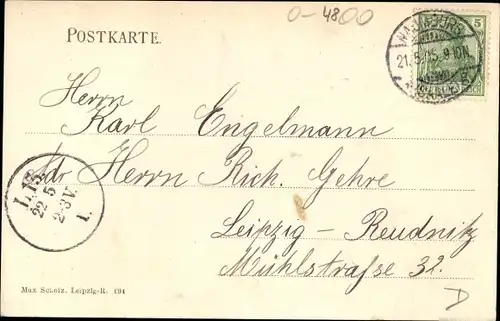 0-4800
POSTKARTE.
5
NAUMBURG
21.5.05. 9-10N.
Herrn
Karl Engelmann
Adr Herrn Rich. Gehre
Leipzig-Reudnitz
Mühlstraſse 32.
L.13.
22 5
2-3V.
1.
Max Scholz. Leipzig-R. 694
D